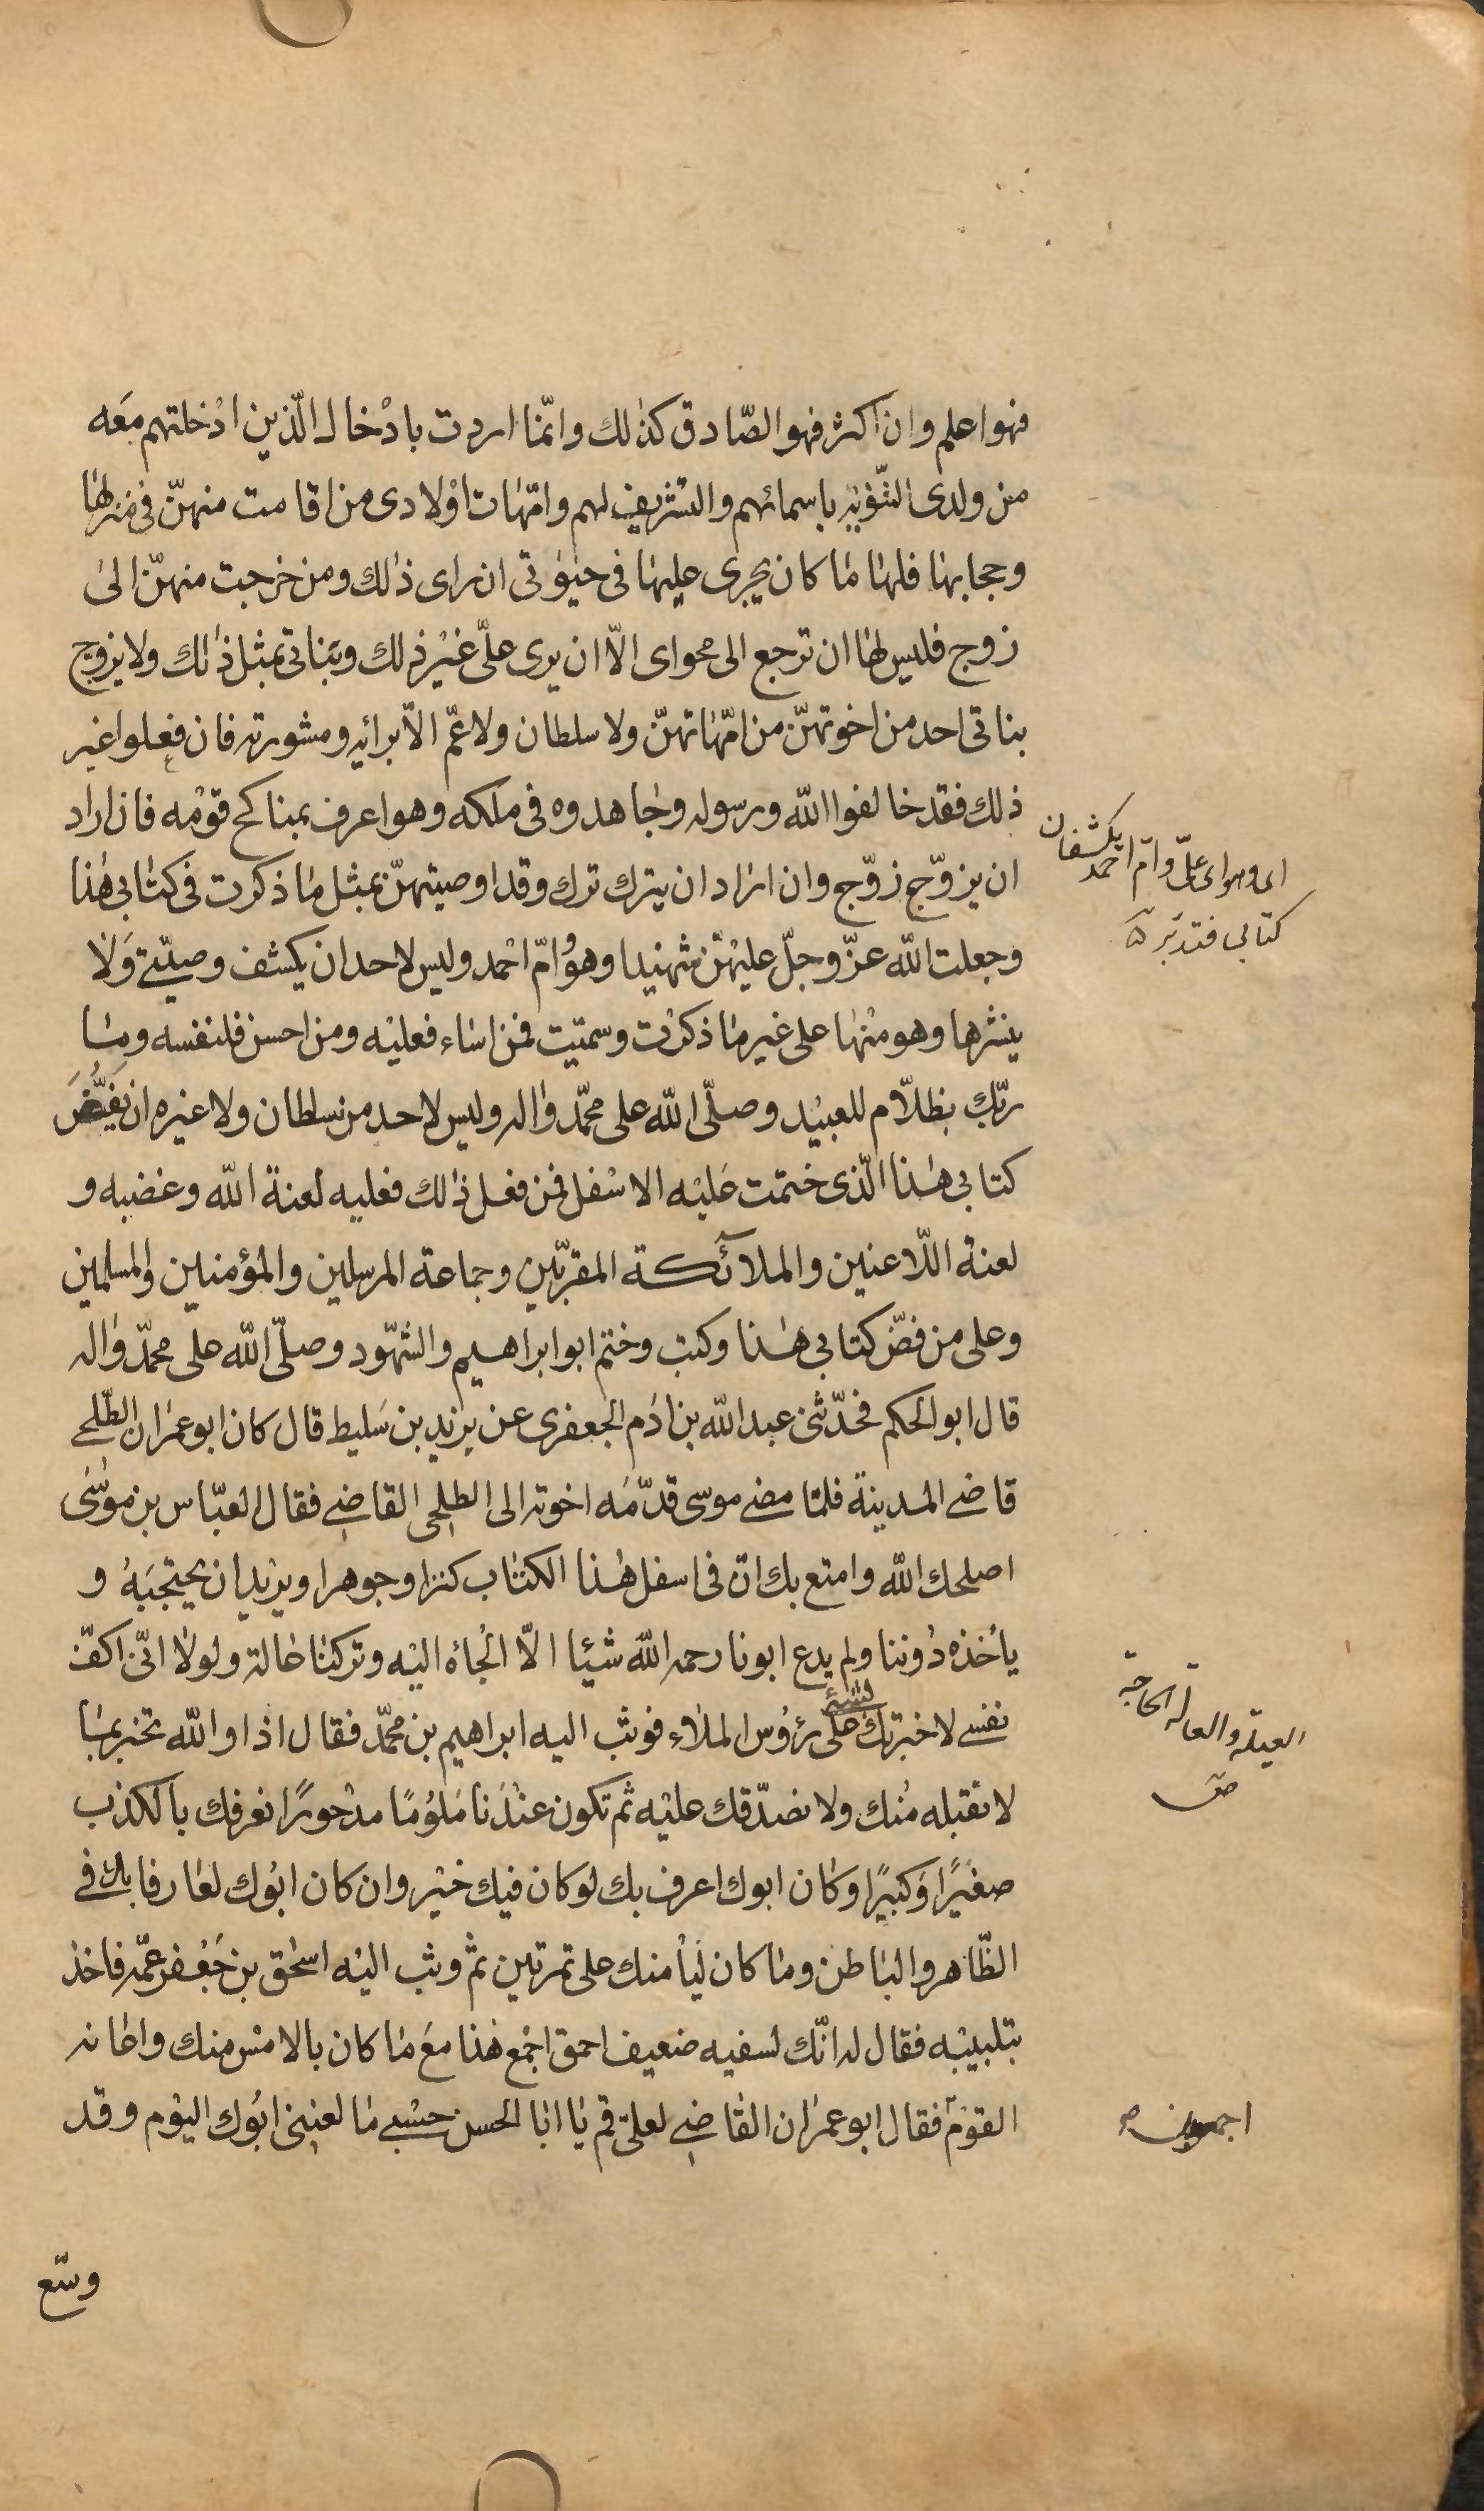 فهو اعلم وان اكثر فهو الصّادق كذلك وانّما اردت بادْخال الّذين ادْخلتهم معَه
من ولدى التّنويه باسمائهم والتشريف لهم وامّهات اوْلادى من اقامت منهنّ فى منزلها
وحجابها فلها ما كان يجرى عليها فى حيٰوتى ان راى ذلك ومن خرجت منهنّ الى
زوج فليس لها ان ترجع الى محواى الّا ان يرى علىّ غيْر ذلك وبَناتى بمثل ذلك ولا يزوّج
بناتى احد من اخوتهنّ من امّهاتهنّ ولا سلطان ولا عمّ الّا برائه ومشورته فان فعلوا غير
ذلك فقد خالفوا الله ورسوله وجاهدوه فى ملكه وهو اعرف بمناكح قوْمه فان اراد
ان يزوّج زوّج وان اراد ان يترك ترك وقد اوصيتهنّ بمثل ما ذكرت فى كتابى هذا
وجعلت الله عزّ وجلّ عليْهنّ شهيدا وهو وامّ احْمد وليس لاحد ان يكشف وصيّتى وَلا
ينشرها وهو منْها على غير ما ذكرْت وسمّيت فمن اساء فعليْه ومن احسن فلنفسه وما
ربّك بظلّام للعبيْد وصلّى الله على محمّد واٰله وليس لاحد من سلطان ولا غيره ان يَفُضَّ
كتابى هٰذا الّذى ختمت عَليْه الاسْفل فمن فعل ذلك فعليه لعنة الله وغضبه و
لعنة اللّاعنين والملآئكة المقرّبين وجماعة المرسلين والمؤمنين والمسلمين
وعلى من فضّ كتابى هٰذا وكتب وختم ابو ابراهيم والشّهود وصلّى الله على محمّد واٰله
قال ابو الحكم فحدّثنى عبد الله بن ادَم الجعفرى عن يزيد بن سَليط قال كان ابو عمران الطّلحى
قاضى المدينة فلمّا مضى موسى قدّمَه اخوته الى الطلحى القاضى فقال العبّاس بن موسٰى
اصلحك الله وامتع بك انّ فى اسفل هٰذا الكتاب كنزا وجوهرا ويريْد ان يحتجبَهُ و
يأخذه دُوننا ولم يدع ابونا رحمه الله شيئا الّا الْجاهُ اليْه وتركنا عالة ولولا انّى اكفّ
نفسى لاخبرتك بشئ على رؤُس الملاء فوثب اليه ابراهيم بن محمّد فقال اذا والله تخبر بما
لا نقبله منْك ولا نصدّقك عليْه ثم تكون عنْدَنا مَلوُمًا مدْحورًا نعرفك بالكذب
صغيْرًا وَكبيْرًا وكان ابوك اعرف بك لو كان فيك خيْر وان كان ابوُك لعارفا بك فى
الظّاهر والباطن وما كان ليَأْمنك على تمرتين ثم وثب اليْه اسحٰق بن جَعْفر عمّه فاخذ
بتلبيبْه فقال له انّك لسفيه ضعيف احمق اجْمع هٰذا معَ ما كان بالامْس منك واعانه
القوْم فقال ابو عمران القاضى لعلىّ قم يا ابا الحسن حسْبى ما لعننى ابوُك اليوْم وقد
وسّع
اى وهو اى علىّ وامّ احمد يكشفان
كتابى فتدبّر
العيلة والعالة الحاجة
ص
اجمعون